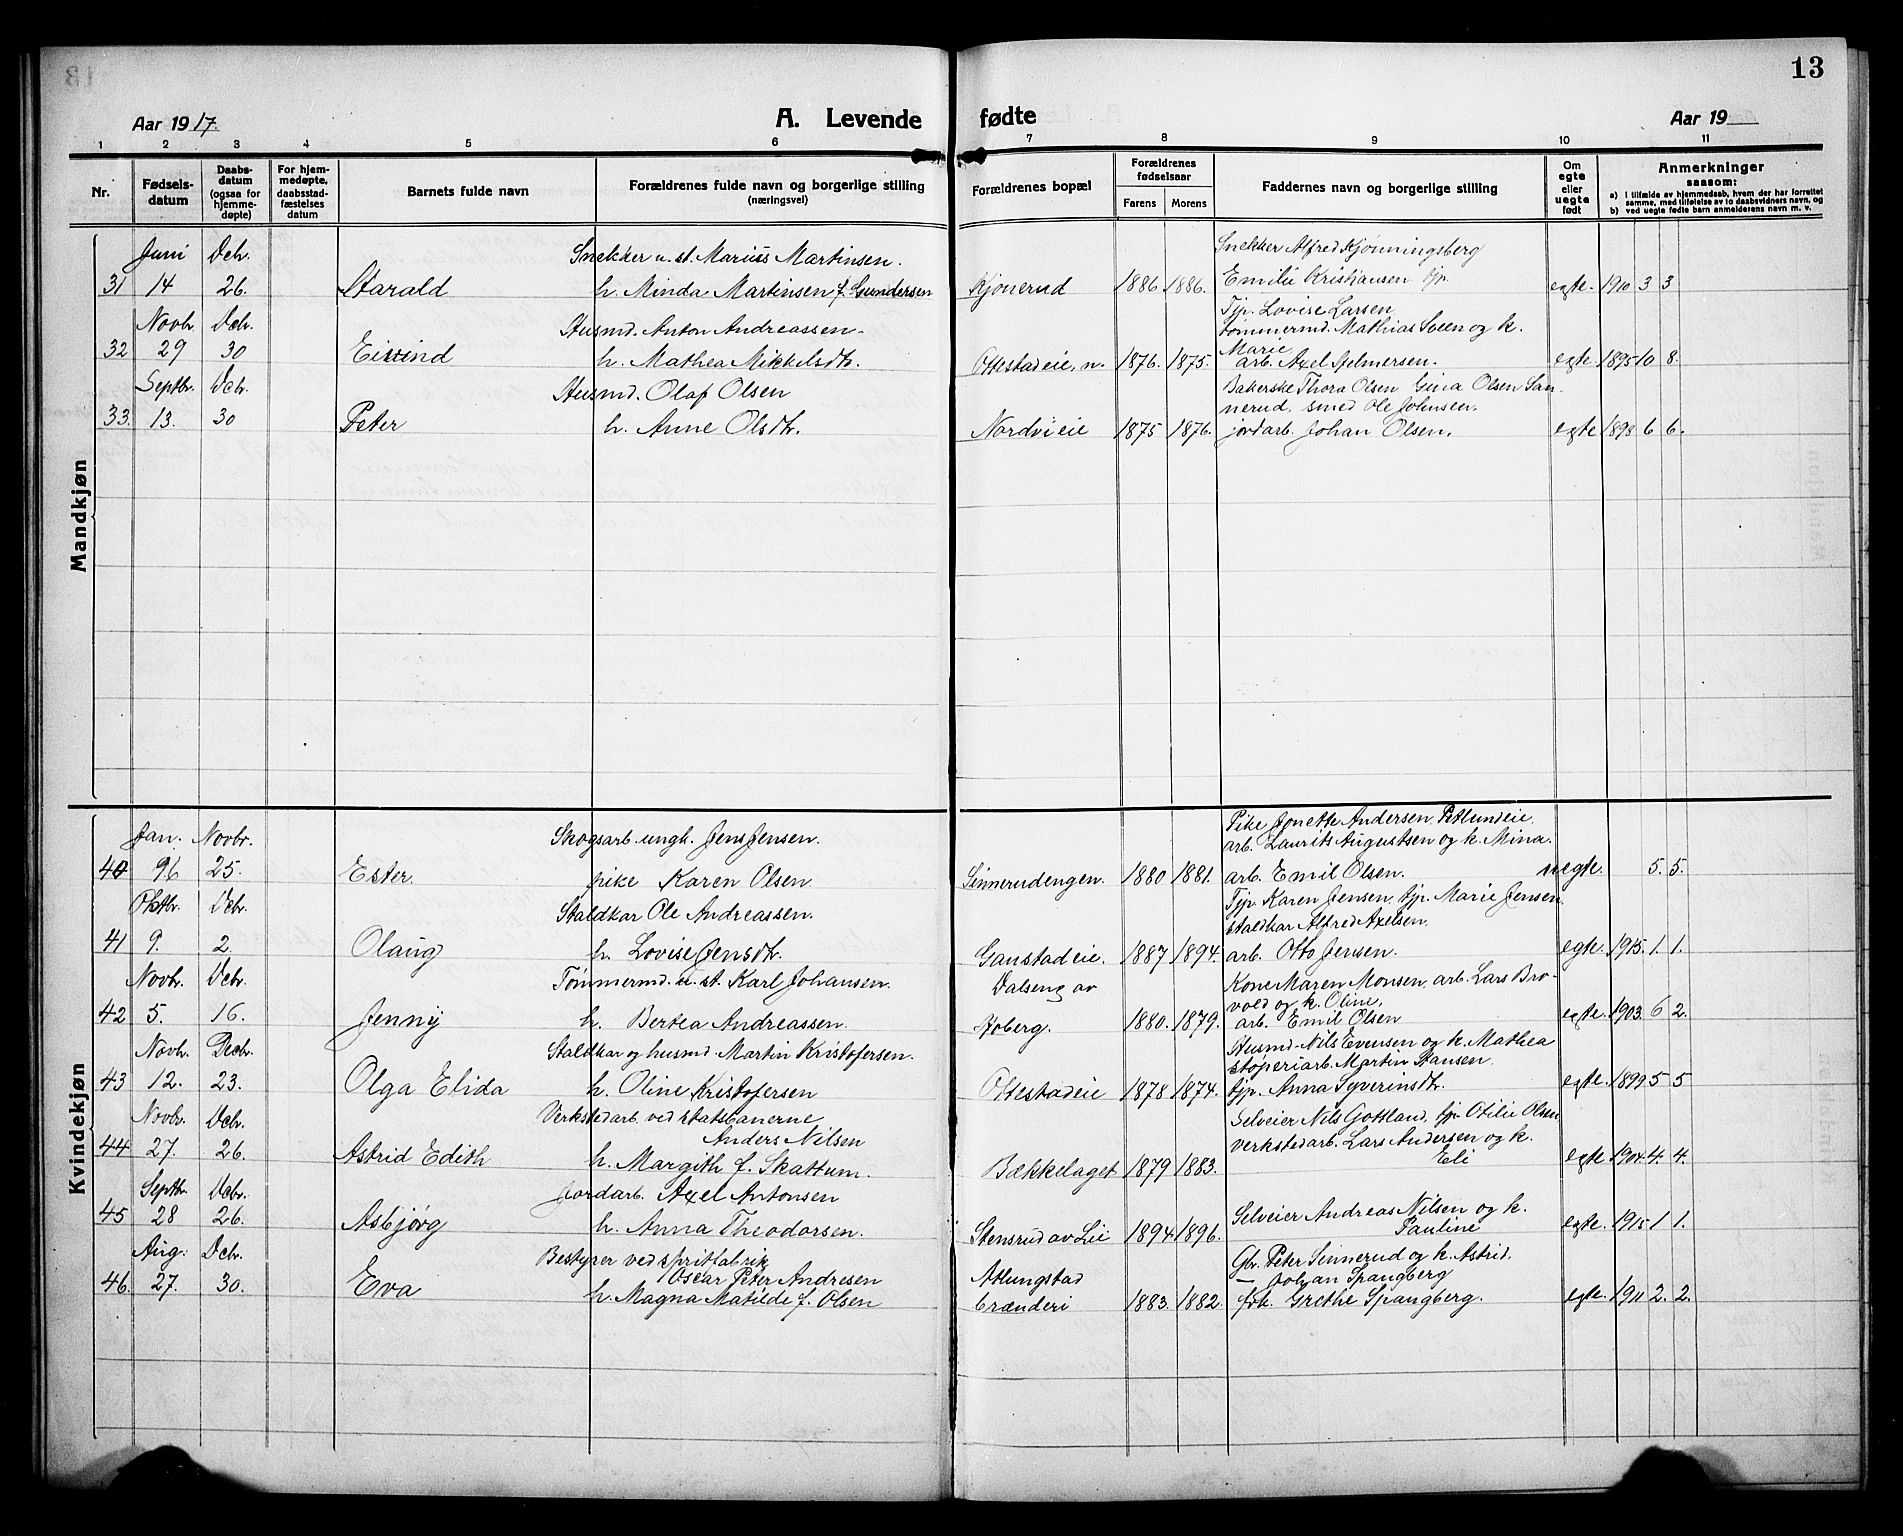 13
Aar 1917.
A. Levende fødte
Aar 19
1 2 3 4 5 6 7 8 9 10 11
Nr.
Fødsels-
datum
Daabs-
datum
(ogsaa for
hjemme-
døpte)
For hjem-
medøpte,
daabsstad-
fæstelses
datum
Barnets fulde navn
Forældrenes fulde navn og borgerlige stilling
(næringsvei)
Forældrenes bopæl
Forældrenes
fødselsaar
Farens Morens
Faddernes navn og borgerlige stilling
Om
egte
eller
uegte
født
Anmerkninger
saasom:
a) i tilfælde av hjemmedaab, hvem der har forrettet
samme, med tilføielse av to daabsvidners navn, og
b) ved uegte fødte barn anmelderens navn m. v.
Mandkjøn
Juni Dcbr. Snekker u. st. Marius Martinsen. Snekker Alfred Kjønningsberg
31 14 26. Harald h. Minda Martinsen f. Gundersen Kjonerud 1886 1886. Emilie Kristiansen tjp. egte. 1910 3 3
Tjp. Lovise Larsen
Novbr. Dcbr. Husmd. Anton Andreassen. tømmermd. Mathias Sveen og k.
Marie
32 29 30 Eivind h. Mathea Mikkelsdtr. Ottestadeie, n. 1876. 1875. arb. Axel Hjelmersen. egte. 1895 10 8.
Septbr. Dcbr. Husmd. Olaf Olsen Bakerske Thora Olsen Gina Olsen San-
nerud, smed Ole Johnsen,
33. 13. 30 Peter h. Anne Olsdtr. Nordvieie 1875 1876. jordarb. Johan Olsen. egte 1898 6 6.
Kvindekjøn
Pike Jonette Andersen,
Jan. Novbr. Skogsarb. ungk. Jens Jensen. arb. Laurits Augustsen og k. Mina.
40 96 25. Ester. pike Karen Olsen Sinnerudengen. 1880 1881. arb. Emil Olsen. uegte. 5. 5.
Oktbr. Dcbr. Staldkar Ole Andreassen. Tjp. Karen Jensen, tjp. Marie Jensen
staldkar Alfred Axelsen.
41 9. 2. Olaug h. Lovise Jensdtr. Ganstadeie. 1887 1894. arb. Otto Jensen. egte. 1915. 1. 1.
Novbr. Dcbr. Tømmermd. u. st. Karl Johansen. Dalseng av Kone Maren Monsen, arb. Lars Bro-
vold og k. Oline,
42 5. 16. Jenny h. Bertea Andreassen. Hoberg. 1880. 1879. arb. Emil Olsen egte. 1903. 6 2.
Novbr. Decbr. Staldkar og husmd. Martin Kristofersen. Husmd. Nils Evensen og k. Mathea
støperiarb. Martin Hansen.
43 12. 23. Olga Elida h. Oline Kristofersen Ottestadeie 1878 1874. tjp. Anna Syverinsdtr. egte. 1899. 5 5
Novbr. Dcbr. Verkstedarb. ved statsbanerne Selveier Nils Gottland, tjp. Otilie Olsen
Anders Nilsen verkstedarb. Lars Andersen og k.
44 27. 26. Astrid Edith h. Margith f. Skattum. Bækkelaget 1879 1883. Eli egte 1904. 4. 4.
Septbr. Dcbr. Jordarb. Axel Antonsen Selveier Andreas Nilsen og k.
45 28 26. Asbjørg h. Anna Theodorsen. Stensrud av Lie 1894 1896. Pauline egte. 1915 1 1.
Aug: Dcbr. Bestyrer ved spritfabrik Gbr. Peter Sinnerud og k. Astrid.
Oscar Peter Andresen Atlungstad — Johan Spangberg
46. 27. 30. Eva h. Magna Matilde f. Olsen brænderi 1883. 1882. frk. Grethe Spangberg. egte. 1911 2. 2.